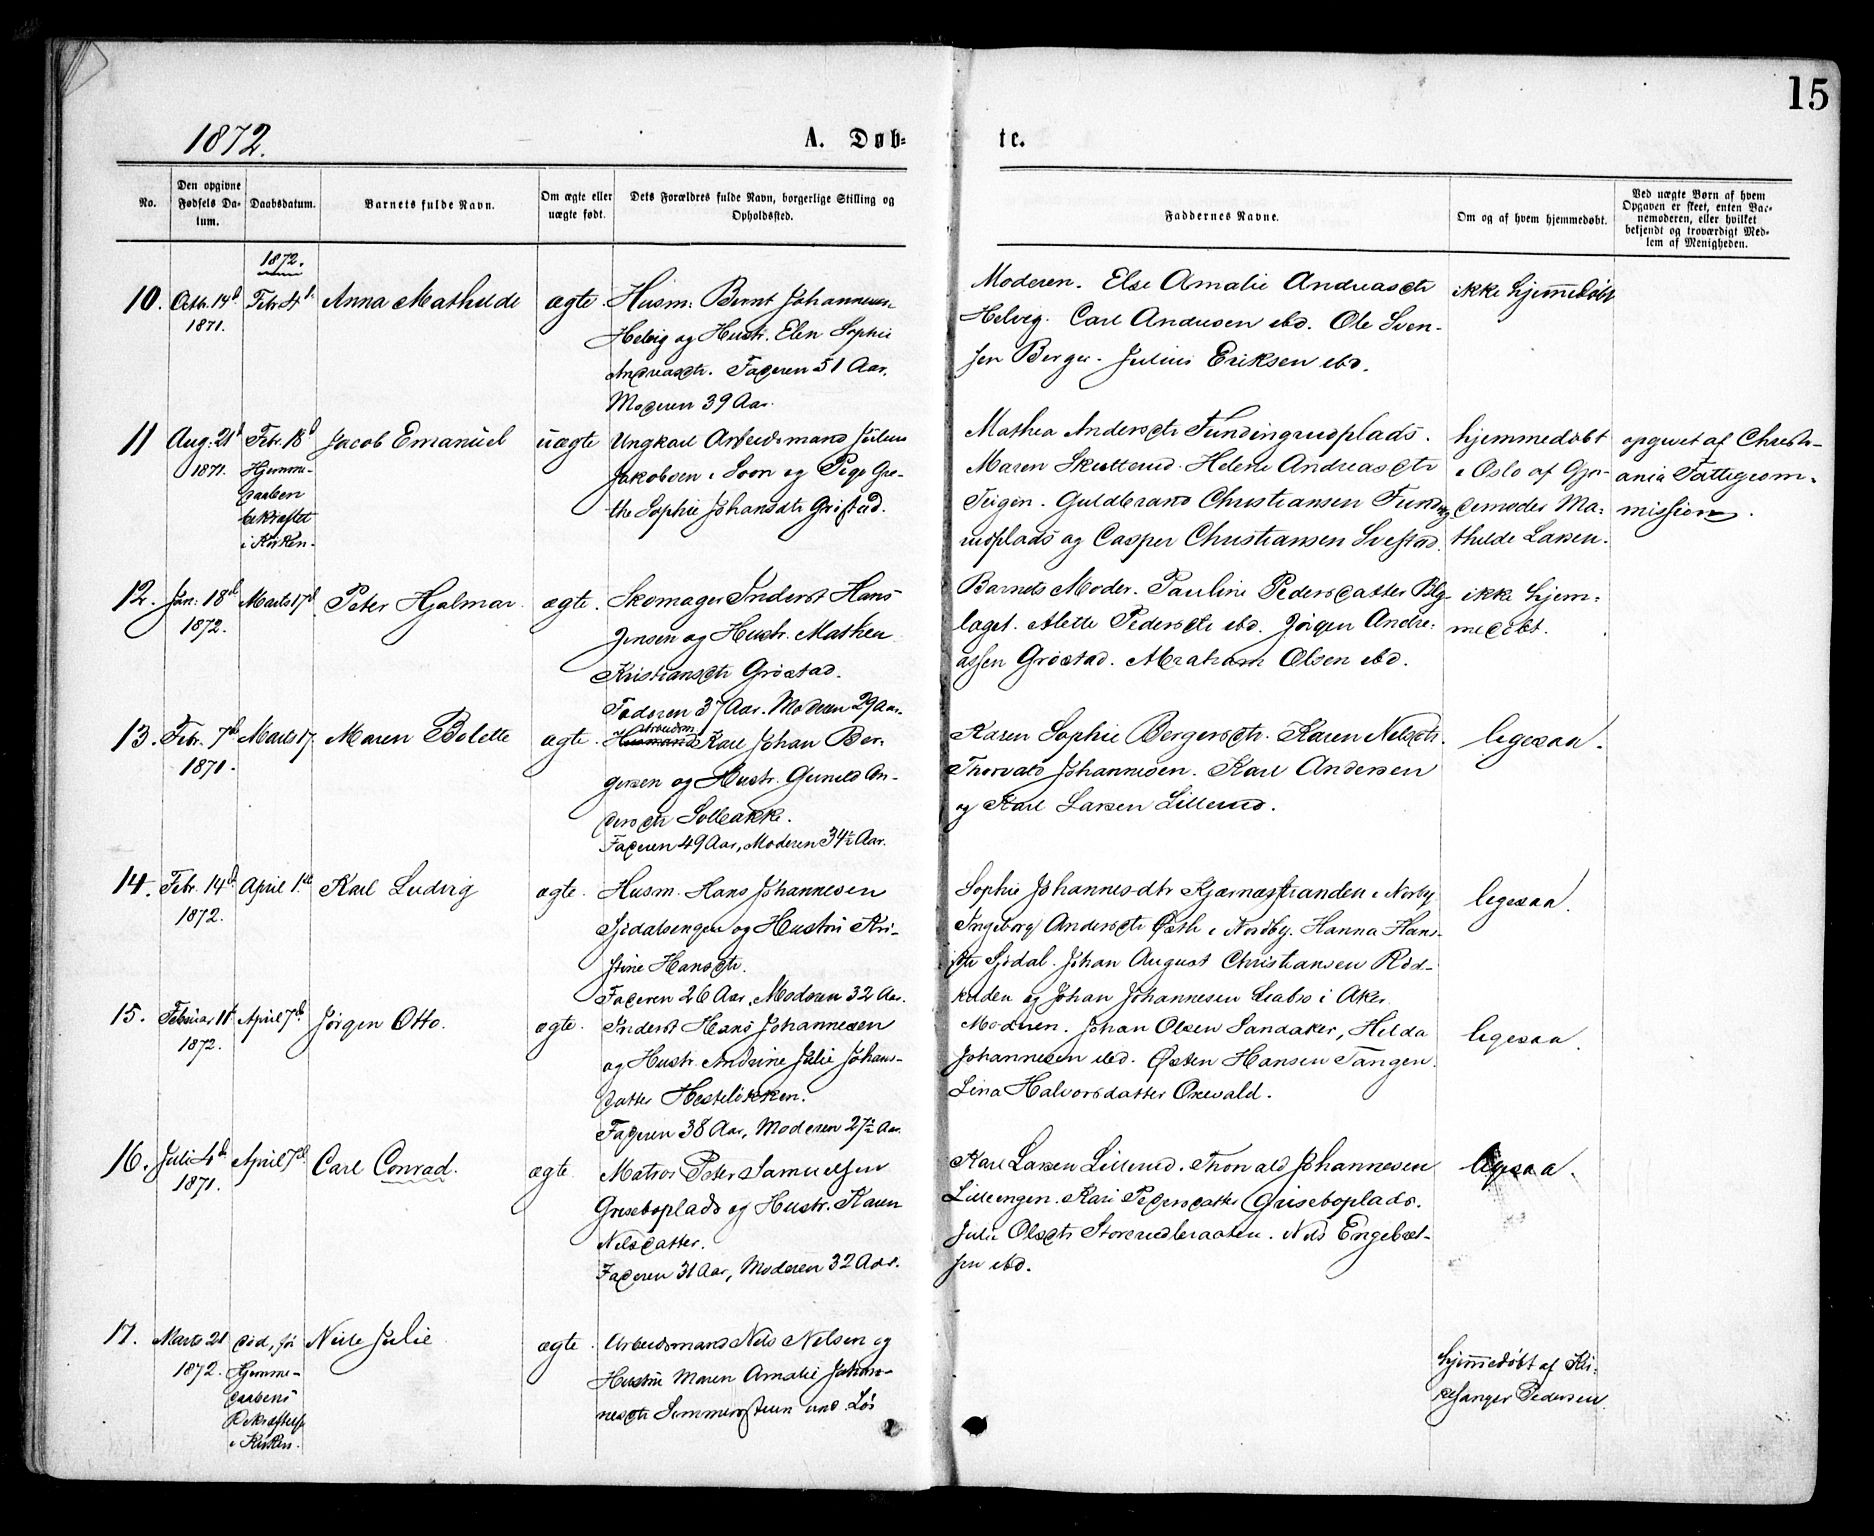 15
1872.
A. Døb-
te.
No.
Den opgivne
Fødsels Da-
tum.
Daabsdatum.
Barnets fulde Navn.
Om ægte eller
uægte født.
Dets Forældres fulde Navn, borgerlige Stilling og
Opholdssted.
Faddernes Navne.
Om og af hvem hjemmedøbt.
Ved uægte Børn af hvem
Opgaven er skeet, enten Bar-
nemoderen, eller hvilket
bekjendt og troværdigt Med-
lem af Menigheden.
1872.
10.
Octb. 14d
1871.
Febr 4d
Anna Mathilde
ægte.
Husm. Bernt Johannesen
Helvig og Hustr. Elen Sophie
Andreasdtr. Faderen 51 Aar.
Moderen 39 Aar.
Moderen. Else Amalie Andreasdtr
Helvig. Carl Andresen ibd. Ole Sven-
sen Berger. Julius Eriksen ibd.
ikke hjemmedøbt
11
Aug. 21d
1871.
Febr. 18d
Hjemme-
daaben
bekræftet
i Kirken.
Jacob Emanuel
uægte
Ungkarl Arbeidsmand Julius
Jakobsen i Soon og Pige Gre-
the Sophie Johansdtr Gristad.
Mathea Andersdtr Fundingrudplads.
Maren Skutterud. Helene Andreasdtr
Teigen. Guldbrand Christiansen Funding-
rudplads og Casper Christiansen Svestad.
hjemmedøbt
i Oslo af Gjor-
demoder Ma-
thilde Larsen.
opgivet af Christi-
ania Fattigcom-
mission.
12.
Jan. 18d
1872.
Marts 17d
Peter Hjalmar.
ægte.
Skomager Inderst Hans
Jensen og Hustr. Mathea
Kristiansdtr Grøstad.
Faderen 37 Aar. Moderen 29 Aar.
Barnets Moder. Pauline Pedersdatter Blg-
laget. Alette Pedersdtr ibd. Jørgen Andre-
assen Grøstad. Abraham Olsen ibd.
ikke hjem-
medøbt.
13.
Febr. 7d
1871.
Marts 17.
Maren Bolette
ægte.
Arbeidsm
Husmand Karl Johan Ber-
gersen og Hustr. Gunild An-
dersdtr Solbakke.
Faderen 49 Aar, Moderen 34½ Aar.
Karen Sophie Bergersdtr. Karen Nelsdtr.
Thorvald Johannesen. Karl Andersen
og Karl Larsen Lillerud.
ligesaa.
14.
Febr. 14d
1872.
April 1ste
Karl Ludvig
ægte.
Husm. Hans Johannesen
Sjødalsengen og Hustru Kri-
stine Hansdtr.
Faderen 26 Aar, Moderen 32 Aar.
Sophie Johannesdtr Kjærnæsstranden i Nordby
Ingeborg Andersdtr Østli i Nordby. Hanna Hans-
dtr Sjødal. Johan August Christiansen Rød-
kilden og Johan Johannesen Grabro i Aker
ligesaa.
15.
Februar 11d
1872.
April 7d
Jørgen Otto.
ægte.
Inderst Hans Johannesen
og Hustr. Andrine Julie Johans-
datter Hesteløkken.
Faderen 38 Aar, Moderen 27½ Aar.
Moderen. Johan Olsen Sandaker, Hilda
Johannesen ibd. Østen Hansen Tangen.
Lina Halvorsdatter Oxevald.
ligesaa.
16.
Juli 4d
1871.
April 7d
Carl Conrad.
ægte
Matros Peter Samuelsen
Griseboplads og Hustr. Karen
Nelsdatter.
Faderen 31 Aar, Moderen 32 Aar.
Karl Larsen Lillerud. Thorvald Johannesen
Lilleengen. Kari Pedersdatter Griseboplads.
Julie Olsdtr Storerudbraaten. Nils Engebret-
sen ibd.
ligesaa.
17.
Marts 21
1872.
død, før
Hjemme-
daabens
Bekræftelse
i Kirken.
Nille Julie
ægte.
Arbeidsmand Nels Nelsen og
Hustru Maren Amalie Johan-
nesdtr Sommerosteen und. Løs
hjemmedøbt af Kir-
kesanger Pedersen.